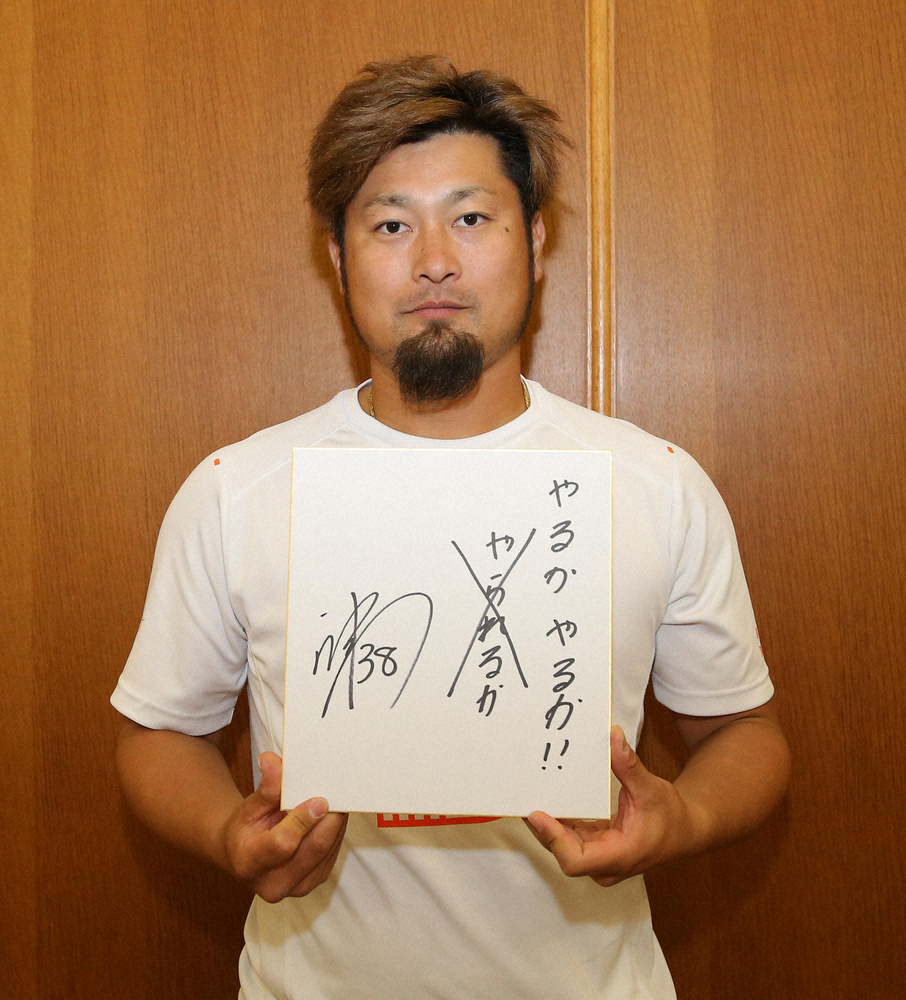 やるか やるか!!
やられるか
38